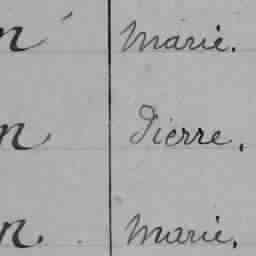 n Marie.
n Pierre.
n. Marie.